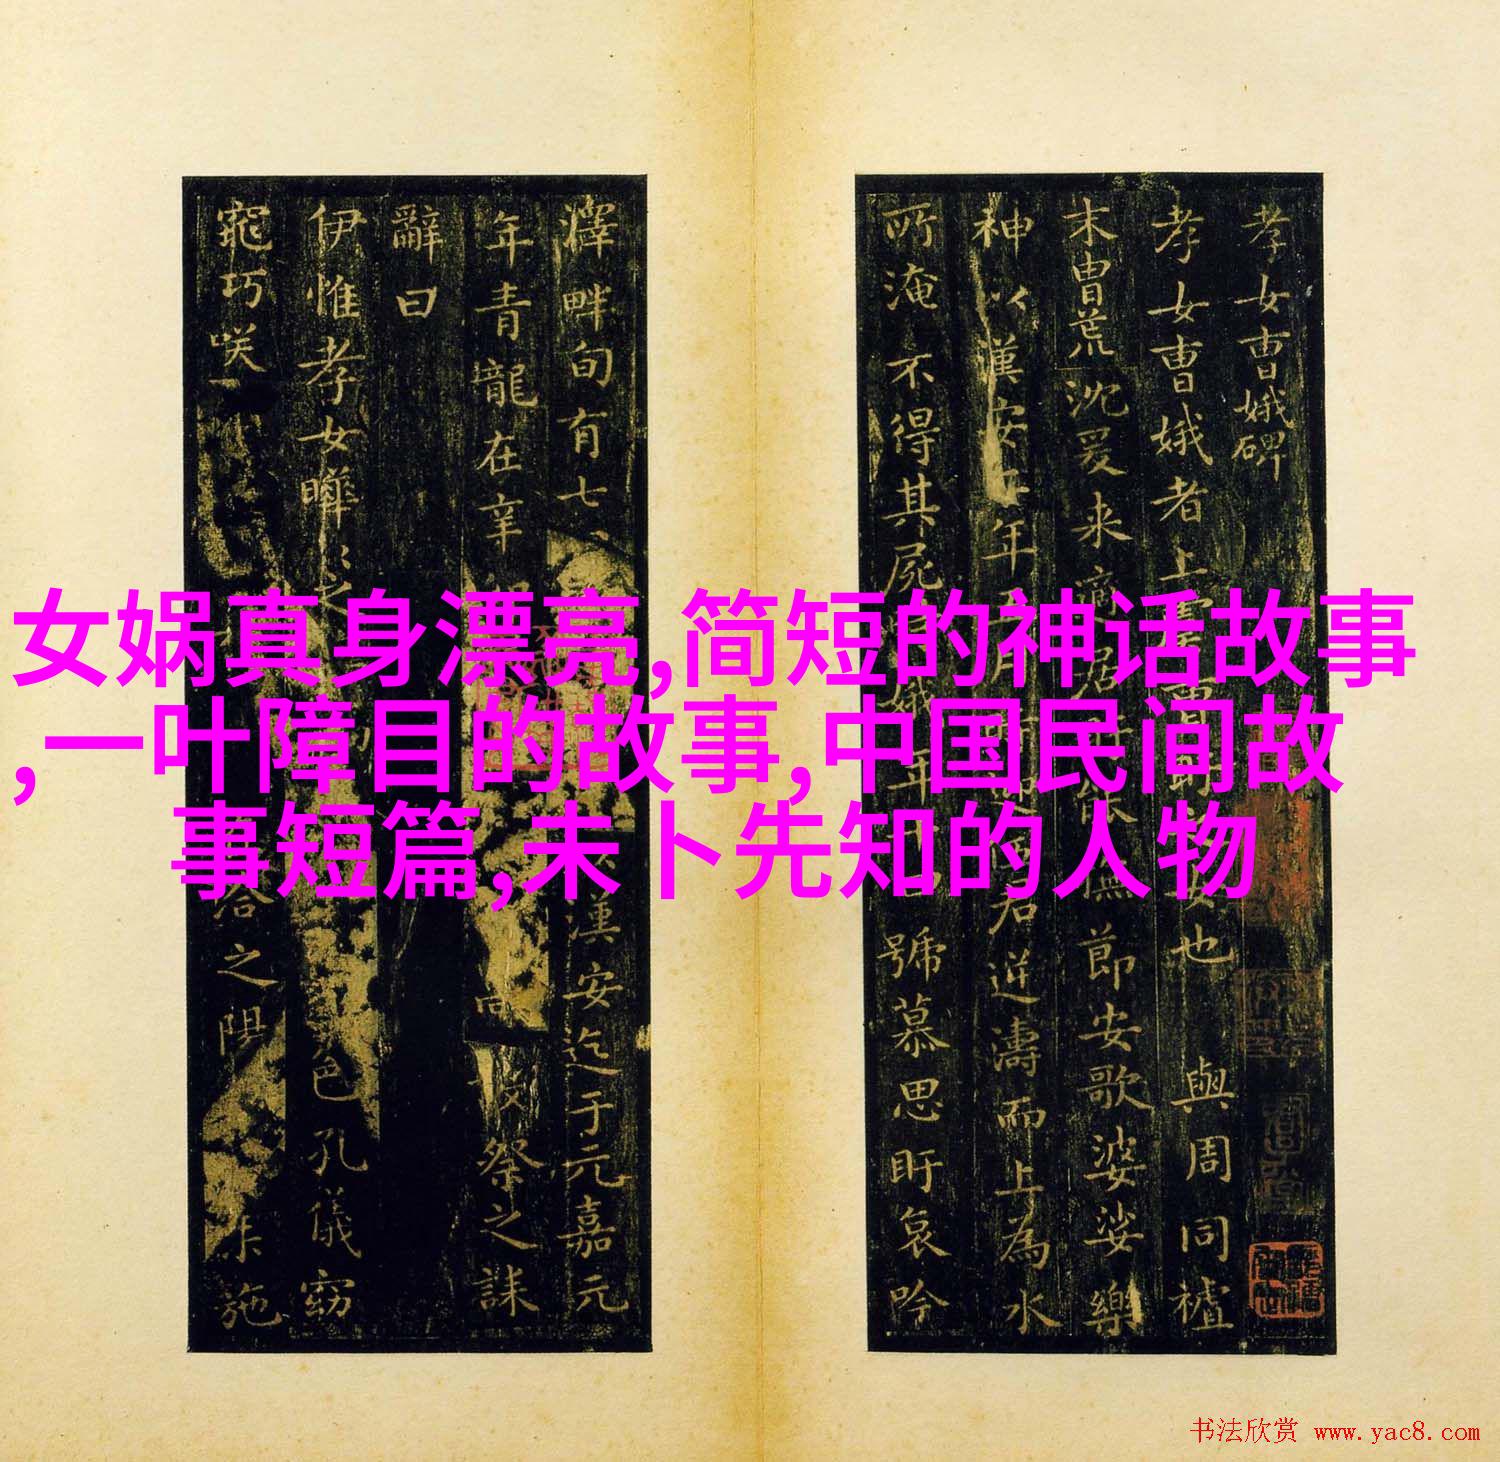 孝女曹娥碑
孝女曹娥者上 女也 與周同禮
末胄荒沈爰来適居 能撫節安歌婆娑樂
神以漢安二年五月時 君逆濤而上為水
所淹不得其屍 娥年十 號慕思盱哀吟
澤畔旬有七 漢安迄于元嘉元
年青龍在辛 祭之誄
辭曰
伊惟孝女曄 之 色孔儀窈
窕巧咲 洽之陽 施
女娲真身漂亮,简短的神话故事
,一叶障目的故事,中国民间故
事短篇,未卜先知的人物
书法欣赏 www.yac8.com